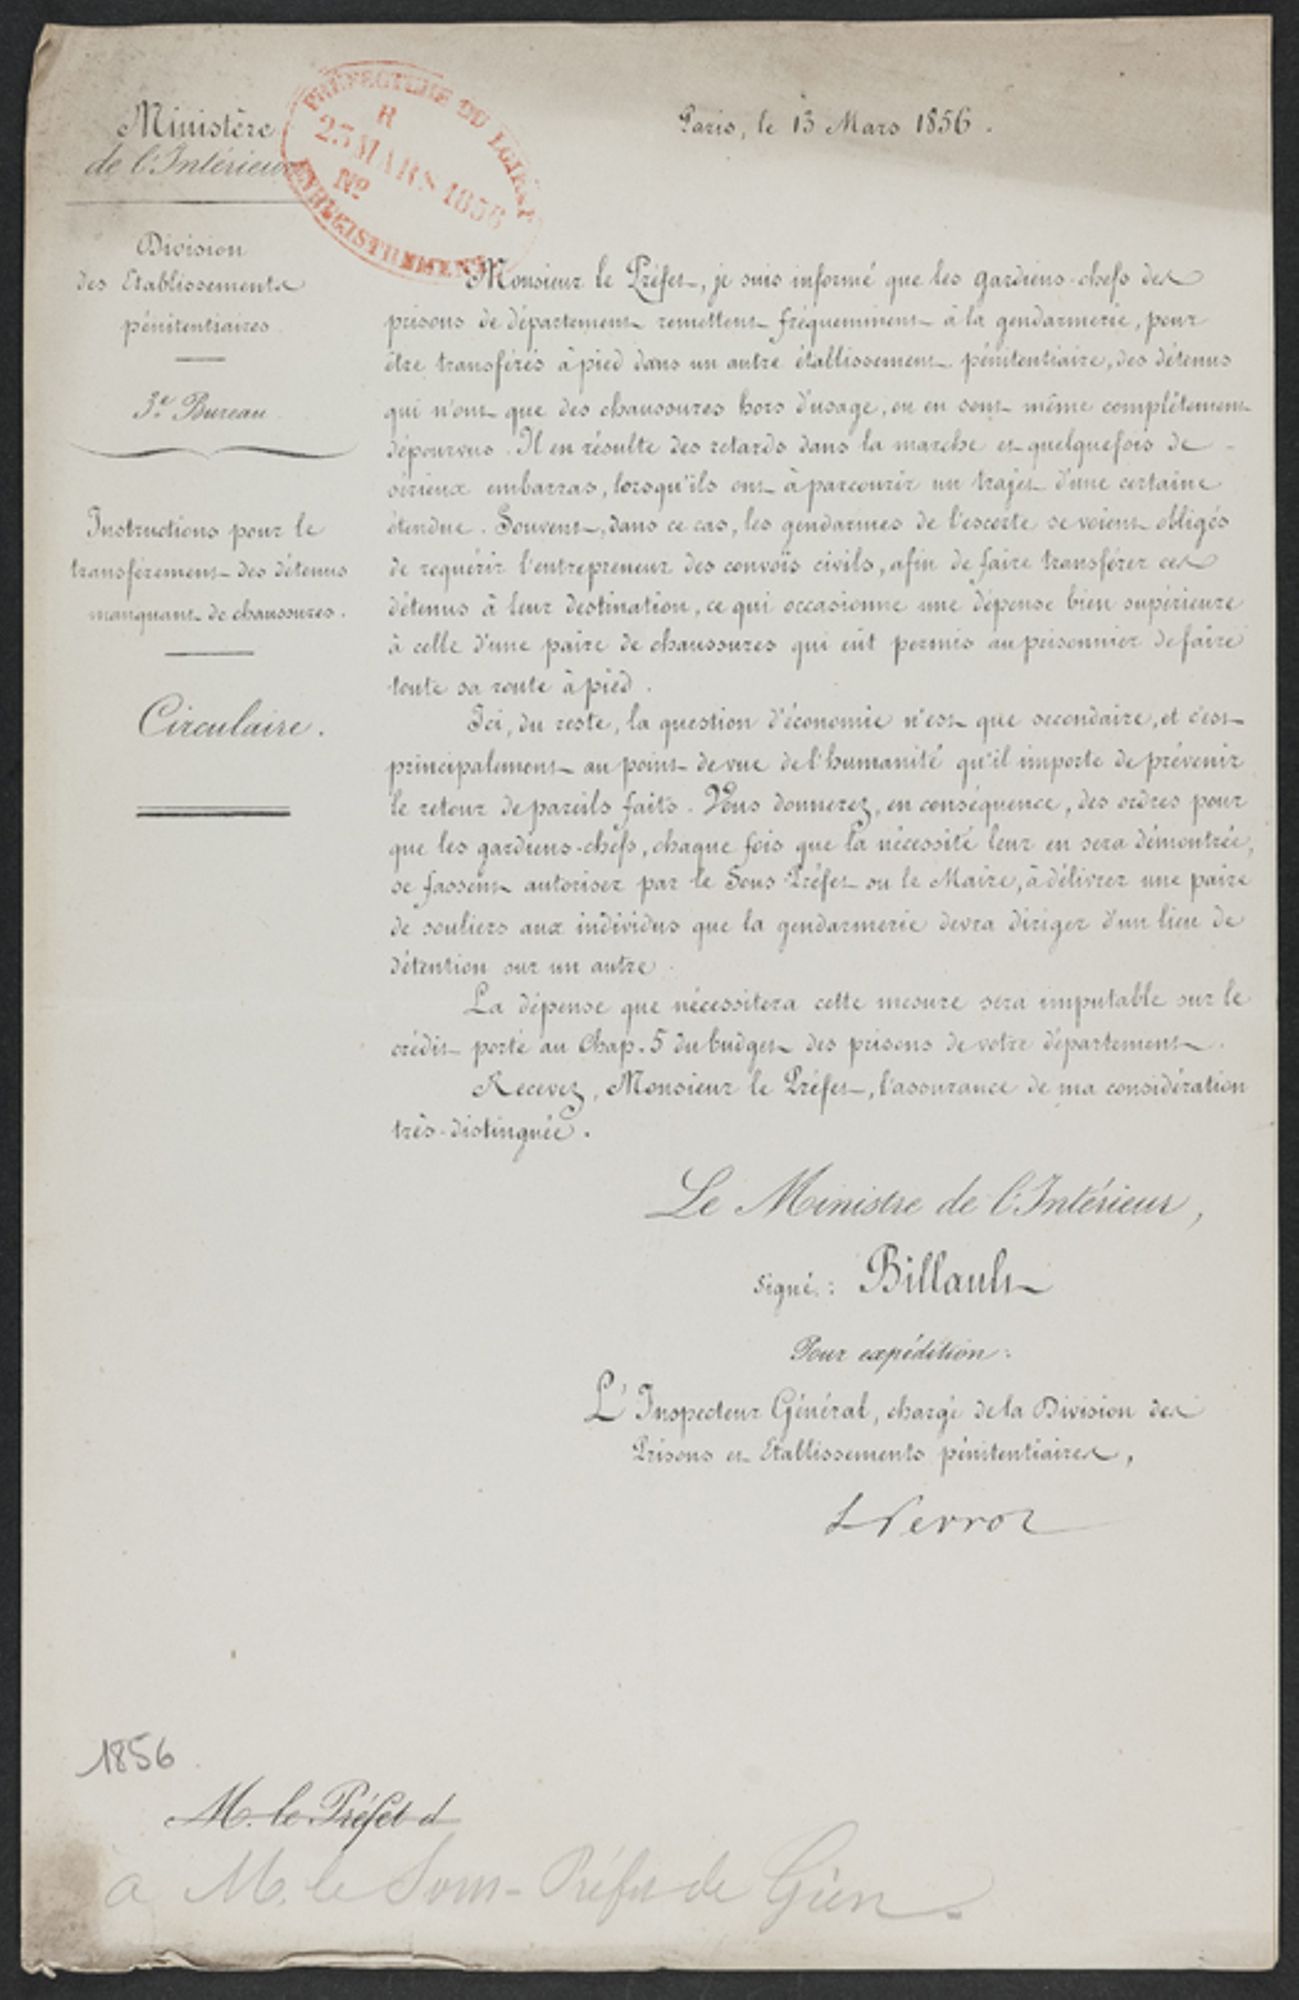 Ministère
de l'Intérieur
PRÉFECTURE DU LOIRET
R
25 MARS 1856
No
ENREGISTREMENT
Paris, le 13 Mars 1856.
Division
des Etablissements
pénitentiaires.
3e. Bureau.
Instructions pour le
transfèrement des détenus
manquant de chaussures.
Circulaire.
Monsieur le Préfet, je suis informé que les gardiens-chefs des
prisons de département remettent fréquemment à la gendarmerie, pour
être transférés à pied dans un autre établissement pénitentiaire, des détenus
qui n'ont que des chaussures hors d'usage, ou en sont même complètement
dépourvus. Il en résulte des retards dans la marche et quelquefois de
sérieux embarras, lorsqu'ils ont à parcourir un trajet d'une certaine
étendue. Souvent, dans ce cas, les gendarmes de l'escorte se voient obligés
de requérir l'entrepreneur des convois civils, afin de faire transférer ces
détenus à leur destination, ce qui occasionne une dépense bien supérieure
à celle d'une paire de chaussures qui eût permis au prisonnier de faire
toute sa route à pied.
Ici, du reste, la question d'économie n'est que secondaire, et c'est
principalement au point de vue de l'humanité qu'il importe de prévenir
le retour de pareils faits. Vous donnerez, en conséquence, des ordres pour
que les gardiens-chefs, chaque fois que la nécessité leur en sera démontrée,
se fassent autoriser par le Sous-Préfet ou le Maire, à délivrer une paire
de souliers aux individus que la gendarmerie devra diriger d'un lieu de
détention sur un autre.
La dépense que nécessitera cette mesure sera imputable sur le
crédit porté au Chap. 5 du budget des prisons de votre département.
Recevez, Monsieur le Préfet, l'assurance de ma considération
très-distinguée.
Le Ministre de l'Intérieur,
Signé: Billault
Pour expédition:
L'Inspecteur Général, chargé de la Division des
Prisons et Etablissements pénitentiaires,
L Perrot
1856
M. le Préfet d
a M. le Sous-Préfet de Gien.